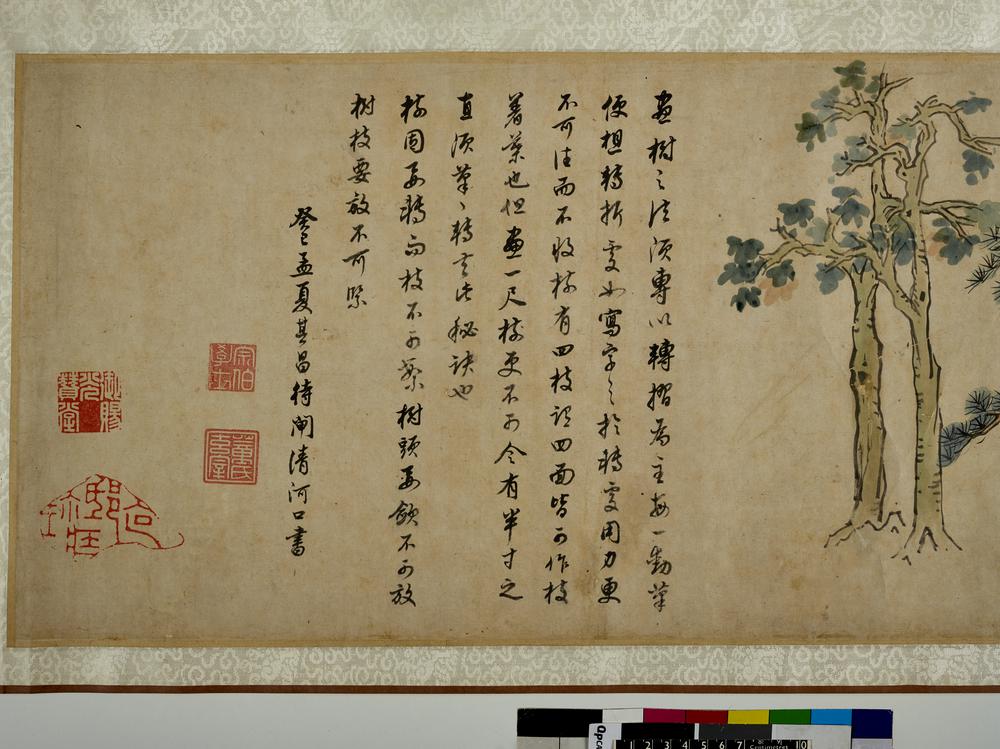 畫樹之法須專以轉摺為主每一動筆
便想轉折處如寫字之於轉處用力更
不可往而不收樹有四枝謂四面皆可作枝
著葉也但畫一尺樹更不可令有半寸之
直須筆〻轉去此秘訣也
樹固要轉而枝不可繁樹頭要斂不可放
樹枝要放不可緊
癸巳孟夏其昌待閘清河口書
宗伯學士
董氏玄宰
1 2 3 4 5 6 7 10
Centimetres